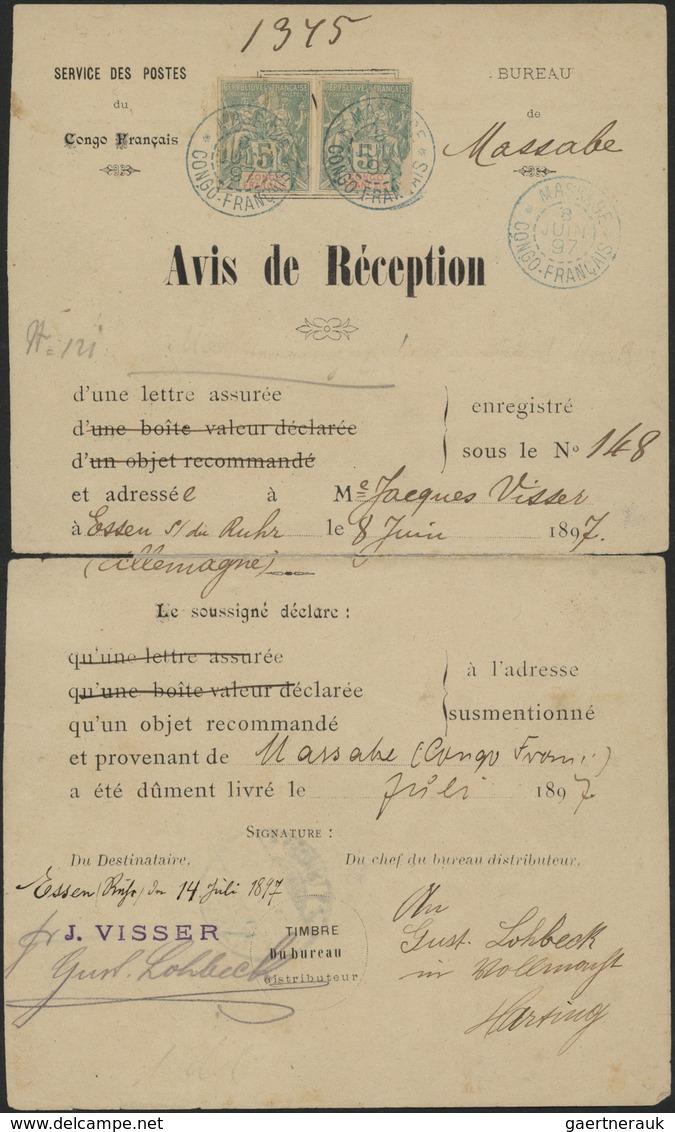 1345
SERVICE DES POSTES
du
Congo Français
BUREAU
de
Massabe
RÉPUBLIQUE FRANÇAISE
COLONIES POSTES
5
CONGO FRANÇAIS
RÉPUBLIQUE FRANÇAISE
COLONIES POSTES
5
CONGO FRANÇAIS
MASSABE
8
JUIN
97
CONGO-FRANÇAIS
MASSABE
8
JUIN
97
CONGO-FRANÇAIS
MASSABE
8
JUIN
97
CONGO-FRANÇAIS
Avis de Réception
N= 121
d'une lettre assurée
d'une boîte valeur déclarée
d'un objet recommandé
enregistré
sous le No 148
et adressée à Me Jacques Visser
à Essen s/ du Ruhr le 8 Juin 1897.
(Allemagne)
Le soussigné déclare :
qu'une lettre assurée
qu'une boîte valeur déclarée
qu'un objet recommandé
à l'adresse
susmentionné
et provenant de Massabe (Congo Franç.)
a été dûment livré le Juli 1897
SIGNATURE :
Du Destinataire. Du chef du bureau distributeur.
Essen (Ruhr) den 14. Juli 1897
pr J. VISSER
Gust. Lohbeck
TIMBRE
Du bureau
distributeur
An
Gust. Lohbeck
in Vollmacht
Hartung
delcampe.net
gaertnerauk